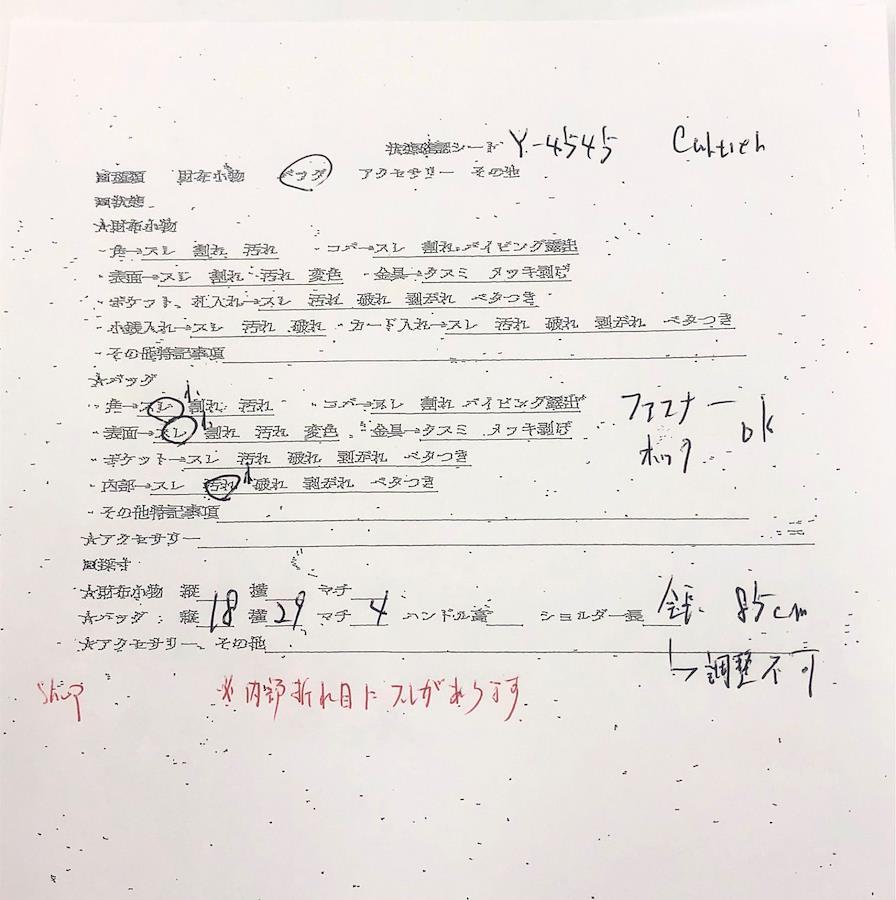 状態確認シート Y-4545 Cartier
■種類 財布小物 バッグ アクセサリー その他
■状態
★財布小物
・角→スレ 割れ 汚れ ・コバ→スレ 割れ パイピング露出
・表面→スレ 割れ 汚れ 変色 ・金具→クスミ メッキ剥げ
・ポケット、札入れ→スレ 汚れ 破れ 剥がれ ベタつき
・小銭入れ→スレ 汚れ 破れ ・カード入れ→スレ 汚れ 破れ 剥がれ ベタつき
・その他特記事項
★バッグ
・角→スレ 割れ 汚れ ・コバ→スレ 割れ パイピング露出 ファスナー
・表面→スレ 割れ 汚れ 変色 ・金具→クスミ メッキ剥げ ok
・ポケット→スレ 汚れ 破れ 剥がれ ベタつき ホック
・内部→スレ 汚れ 破れ 剥がれ ベタつき
・その他特記事項
★アクセサリー
■採寸
★財布小物 縦 横 マチ
★バッグ:縦 18 横 29 マチ 4 ハンドル高 ショルダー長 全長 85cm
★アクセサリー、その他
↳調整不可
Shop ※内部折れ目にスレがあります